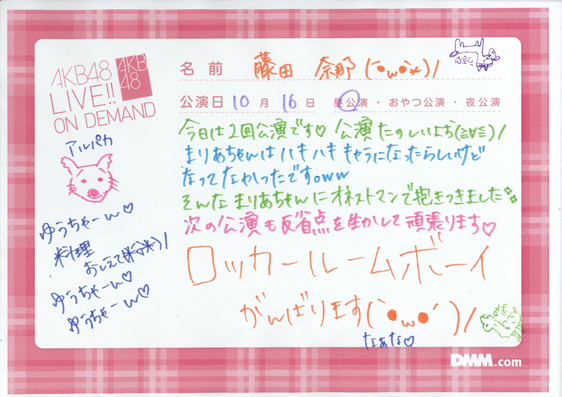 AKB48
LIVE!!
ON DEMAND
AKB
48
名前 藤田 奈那(`・ω・´)/
公演日 10月 16日 昼公演・おやつ公演・夜公演
今日は2回公演です♡ 公演たのしいよお(≧∀≦)/
まりあちゃんはハキハキキャラになったらしいけど
なってなかったですwww
そんなまりあちゃんにオネストマンで抱きつきました
次の公演も反省点を生かして頑張ります♡
ロッカールームボーイ
がんばります(`・ω・´)/
なぁな♡
アルパカ
ゆうちゃーん♡
料理
おしえて
ゆうちゃーん♡
ゆうちゃーん♡
DMM.com